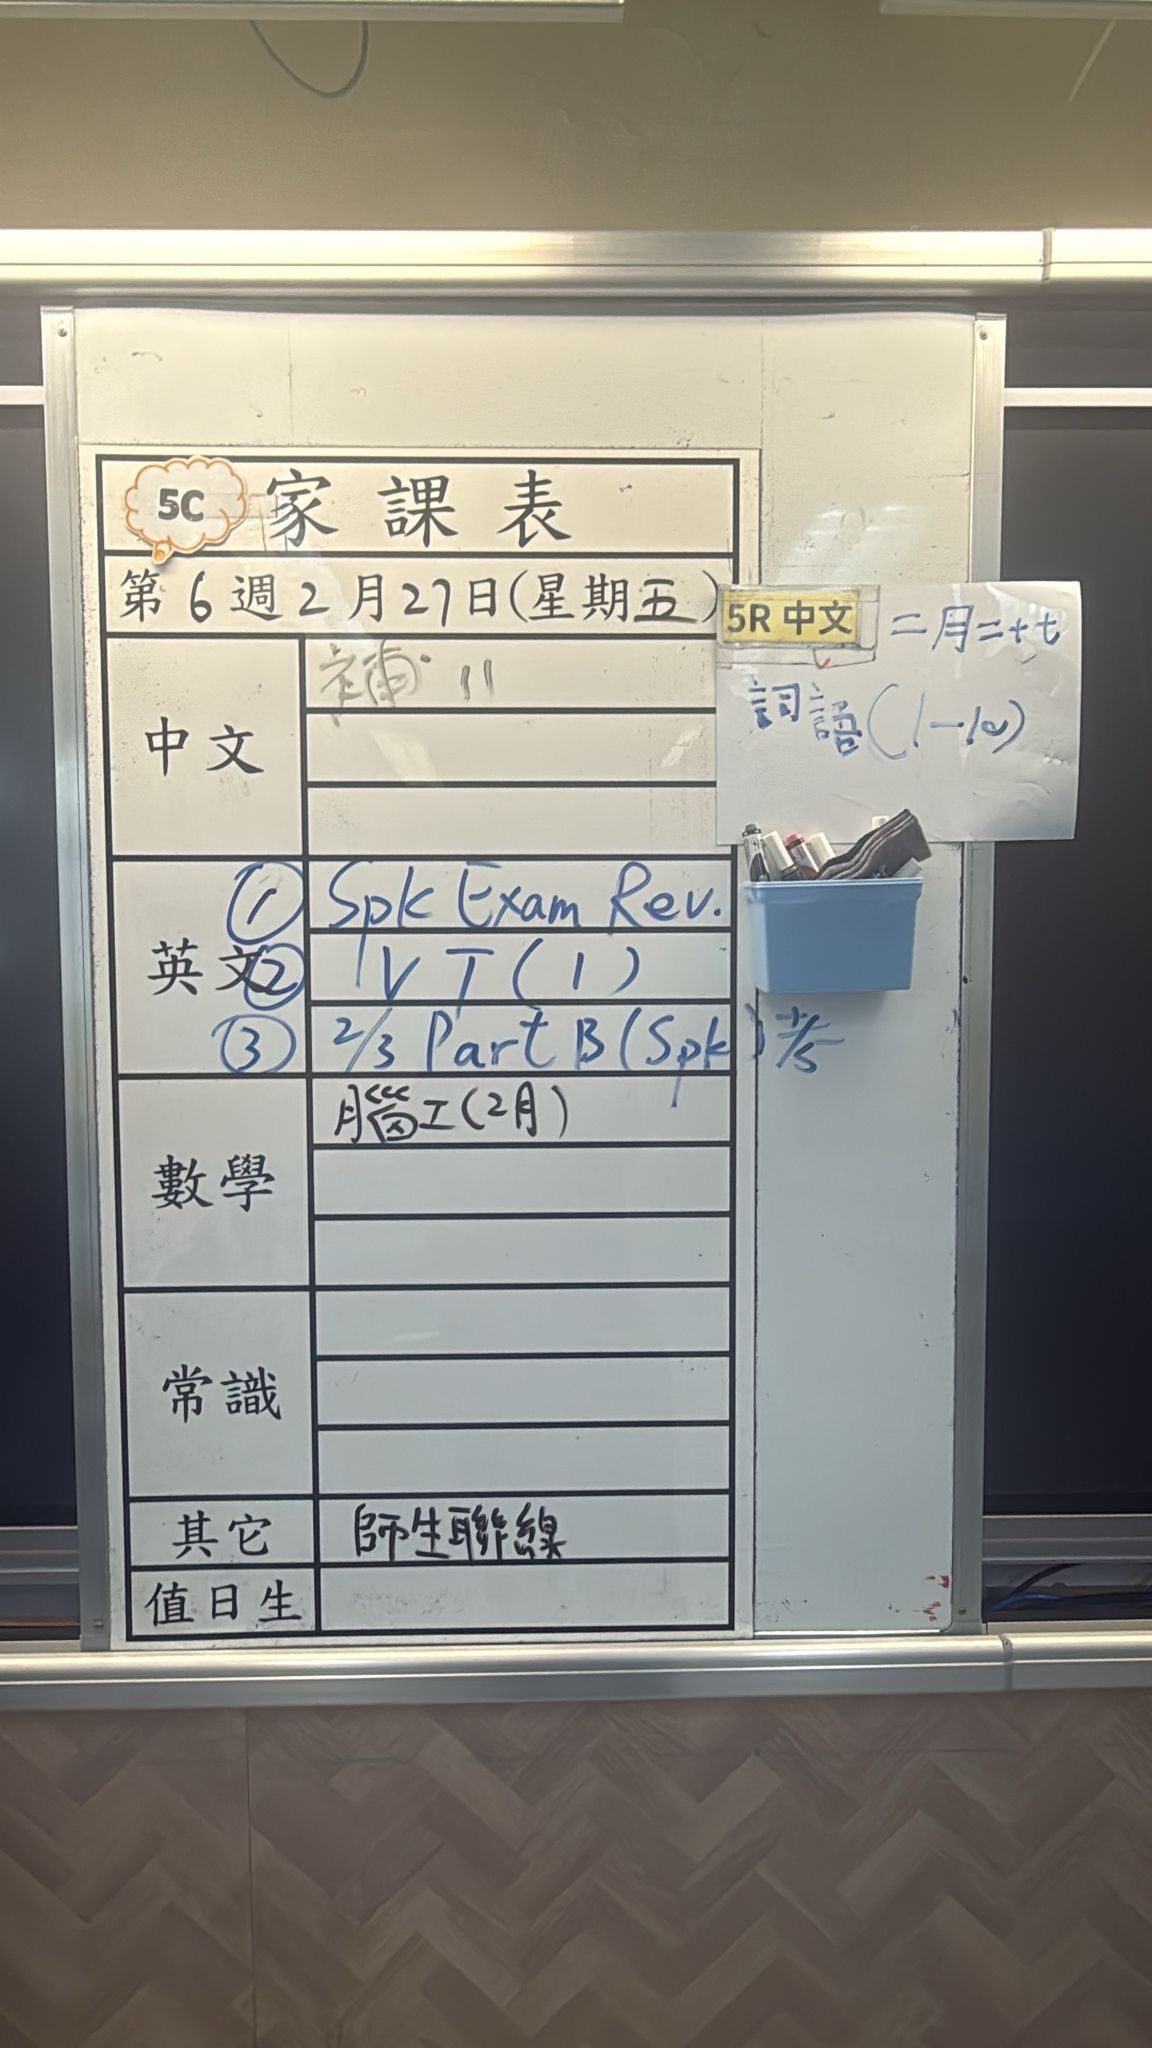 5C 家課表
第6週2月27日(星期五)
5R 中文 二月二十七
詞語(1-10)
中文
補11
英文
① Spk Exam Rev.
② VT(1)
③ 2/3 Part B (Spk)考
數學
腦工(2月)
常識
其它
師生聯線
值日生